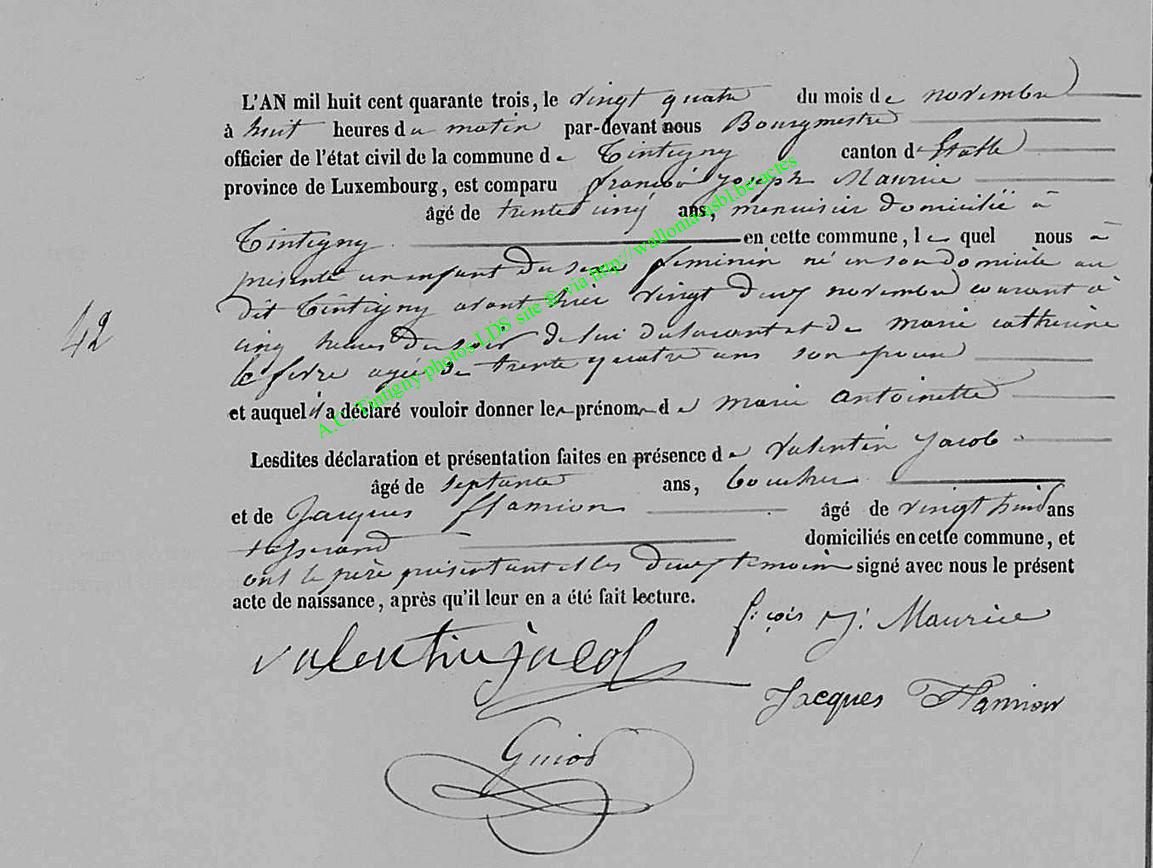 L'AN mil huit cent quarante trois, le vingt quatre du mois de novembre
à huit heures du matin par-devant nous Bourgmestre
officier de l'état civil de la commune de Tintigny canton d'Etalle
province de Luxembourg, est comparu françois Joseph Maurice
âgé de trente cinq ans, menuisier domicilié à
Tintigny en cette commune, le quel nous a
présenté un enfant du sexe feminin né en son domicile au
dit Tintigny avant hier vingt deux novembre courant à
cinq heures du soir de lui déclarant et de marie catherine
le febvre agée de trente quatre ans son epouse
et auquel il a déclaré vouloir donner les prénoms de marie antoinette
Lesdites déclaration et présentation faites en présence de valentin Jacob
âgé de septante ans,
et de Jacques flamion âgé de vingt huit ans
tisserand domiciliés en cette commune, et
ont le père présentant et les deux temoins signé avec nous le présent
acte de naissance, après qu'il leur en a été fait lecture.
42
f:çois J: Maurice
valentin jacob
Jacques Flamion
A.C. Tintigny photos LDS site © via http://wallonia-asbl.be/actes